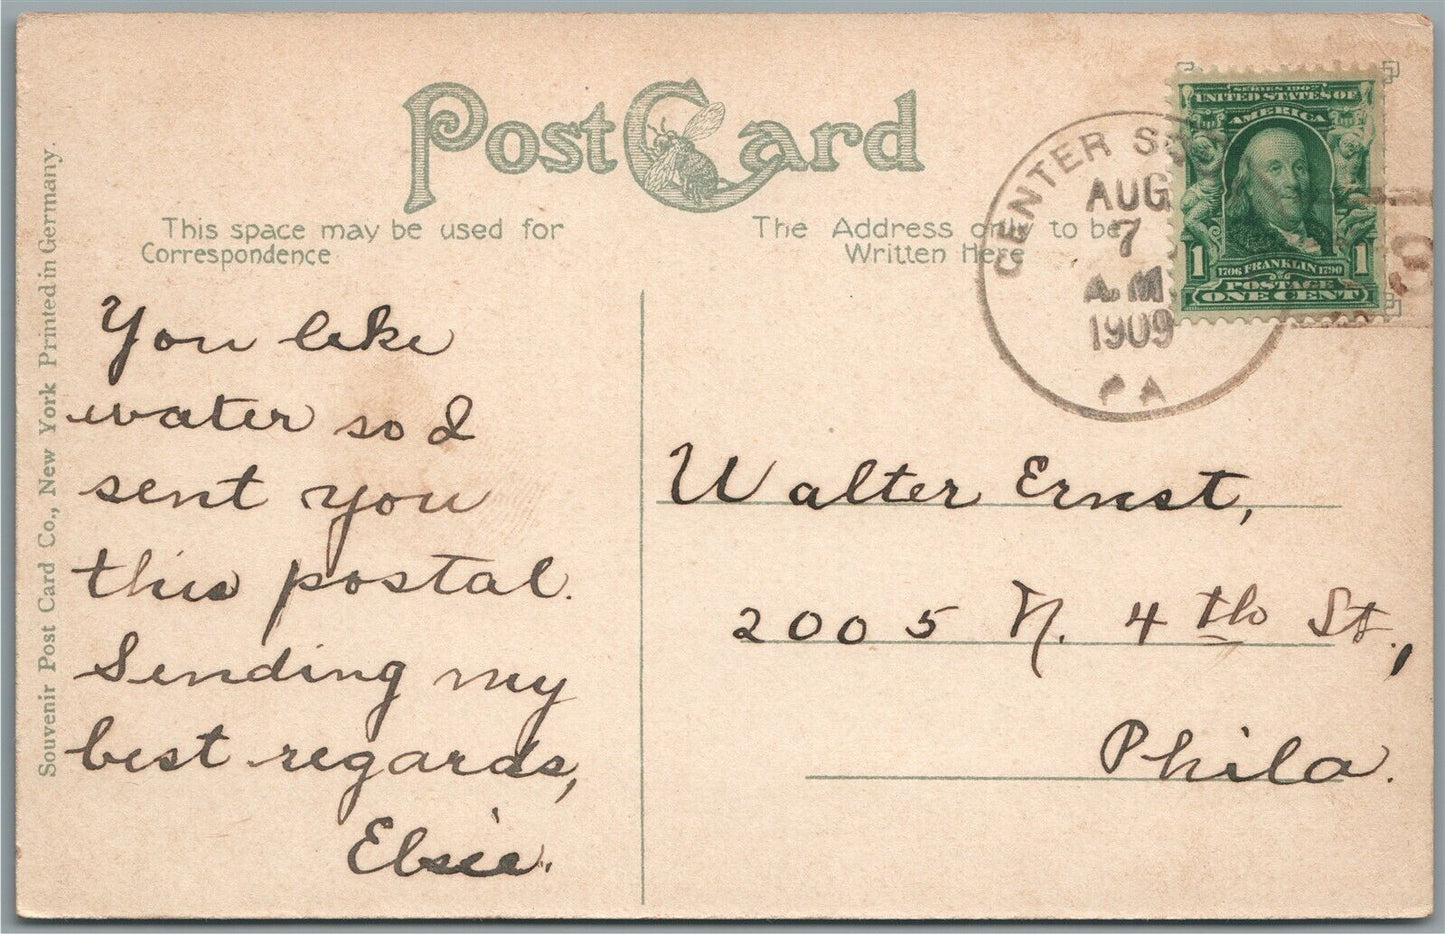 Post Card
This space may be used for
Correspondence
The Address only to be
Written Here
CENTER
AUG
7
A.M
1909
PA
SERIES 1902
UNITED STATES OF
AMERICA
1 1
1706 FRANKLIN 1790
POSTAGE
ONE CENT
Souvenir Post Card Co., New York Printed in Germany.
You like
water so I
sent you
this postal.
Sending my
best regards,
Elsie.
Walter Ernst,
2005 N. 4th St.,
Phila.